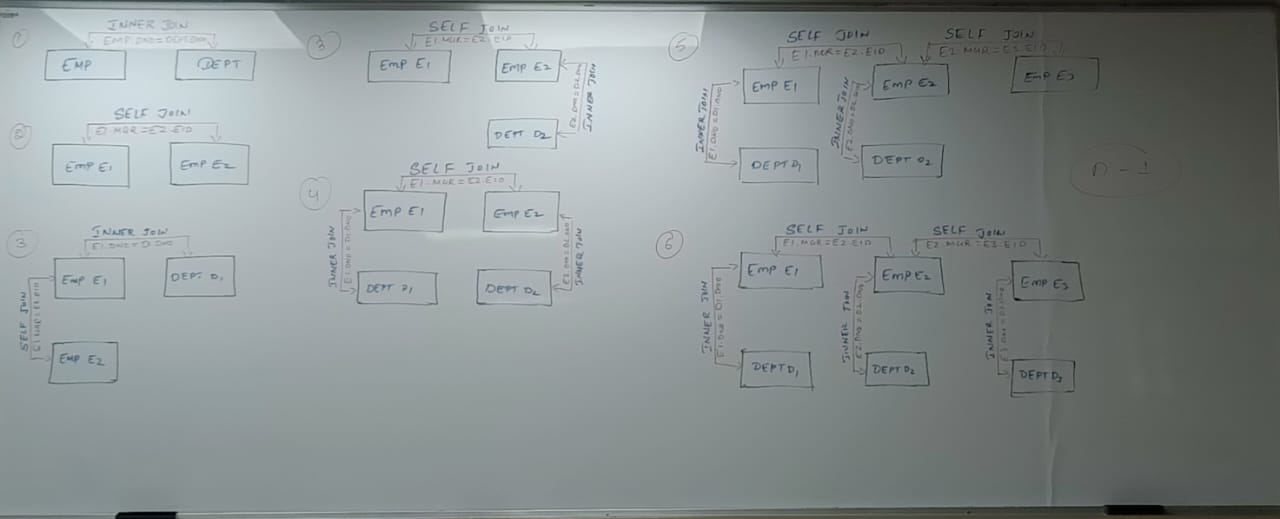 1
INNER JOIN
EMP.DNO=DEPT.DNO
EMP
DEPT
2
SELF JOIN
E1.MGR=E2.EID
EMP E1
EMP E2
3
INNER JOIN
E1.DNO=D1.DNO
EMP E1
DEPT D1
SELF JOIN
E1.MGR=E2.EID
EMP E2
3
SELF JOIN
E1.MGR=E2.EID
EMP E1
EMP E2
E2.DNO=D2.DNO
INNER JOIN
DEPT D2
4
SELF JOIN
E1.MGR=E2.EID
EMP E1
EMP E2
INNER JOIN
E1.DNO=D1.DNO
E2.DNO=D2.DNO
INNER JOIN
DEPT D1
DEPT D2
5
SELF JOIN
SELF JOIN
E1.MGR=E2.EID
EMP E1
EMP E2
EMP E3
INNER JOIN
E1.DNO=D1.DNO
INNER JOIN
E2.DNO=D2.DNO
DEPT D1
DEPT D2
n-1
6
SELF JOIN
SELF JOIN
E1.MGR=E2.EID
EMP E1
EMP E2
EMP E3
INNER JOIN
E1.DNO=D1.DNO
INNER JOIN
E2.DNO=D2.DNO
INNER JOIN
DEPT D1
DEPT D2
DEPT D3